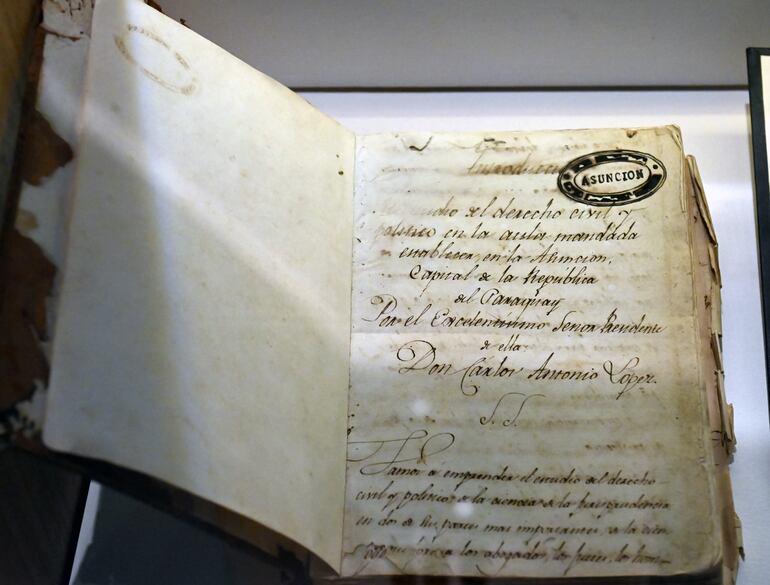 Introducci
ASUNCION
estudio del derecho civil y
politico en la aula mandada
establecer en la Asuncion,
Capital de la República
del Paraguay
Por el Excelentisimo Señor Presidente
de ella
Don Carlos Antonio Lopez.
S. S.
Vamos a emprender el estudio del derecho
civil y politico, o la ciencia de la jurisprudencia
en dos de sus partes mas importantes, a la
los abogados, los jueces, los